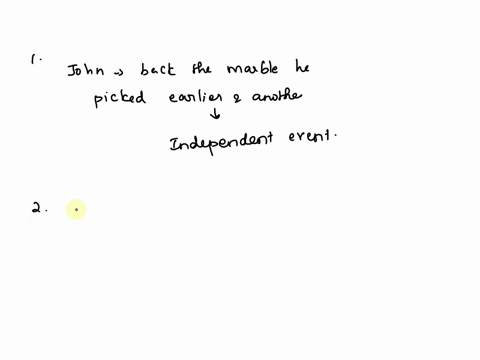 1.
John → back the marble he
picked earlier & anothe
↓
Independent event.
2.